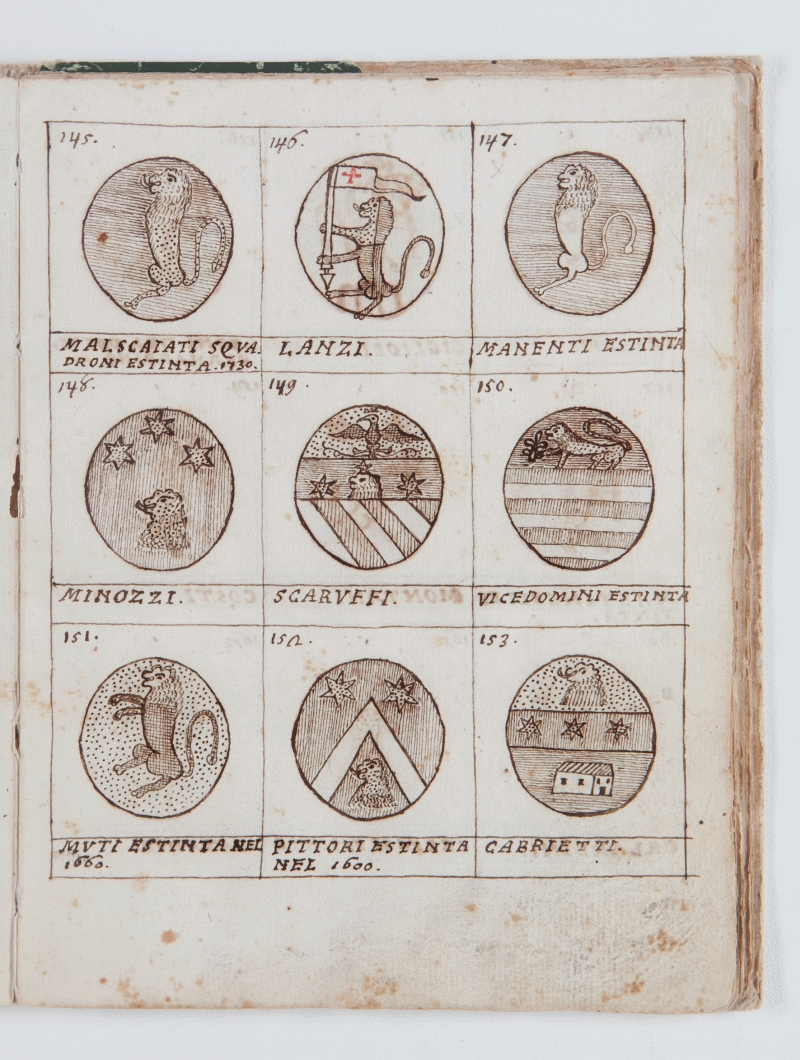 145.
146.
147.
MALSCAIATI SQVA.
DRONI ESTINTA. 1730.
LANZI.
MANENTI ESTINTA
148.
149.
150.
MINOZZI.
SCARVFFI.
VICEDOMINI ESTINTA
151.
152.
153.
MVTI ESTINTA NEL
1660.
PITTORI ESTINTA
NEL 1600.
GABRIETTI.